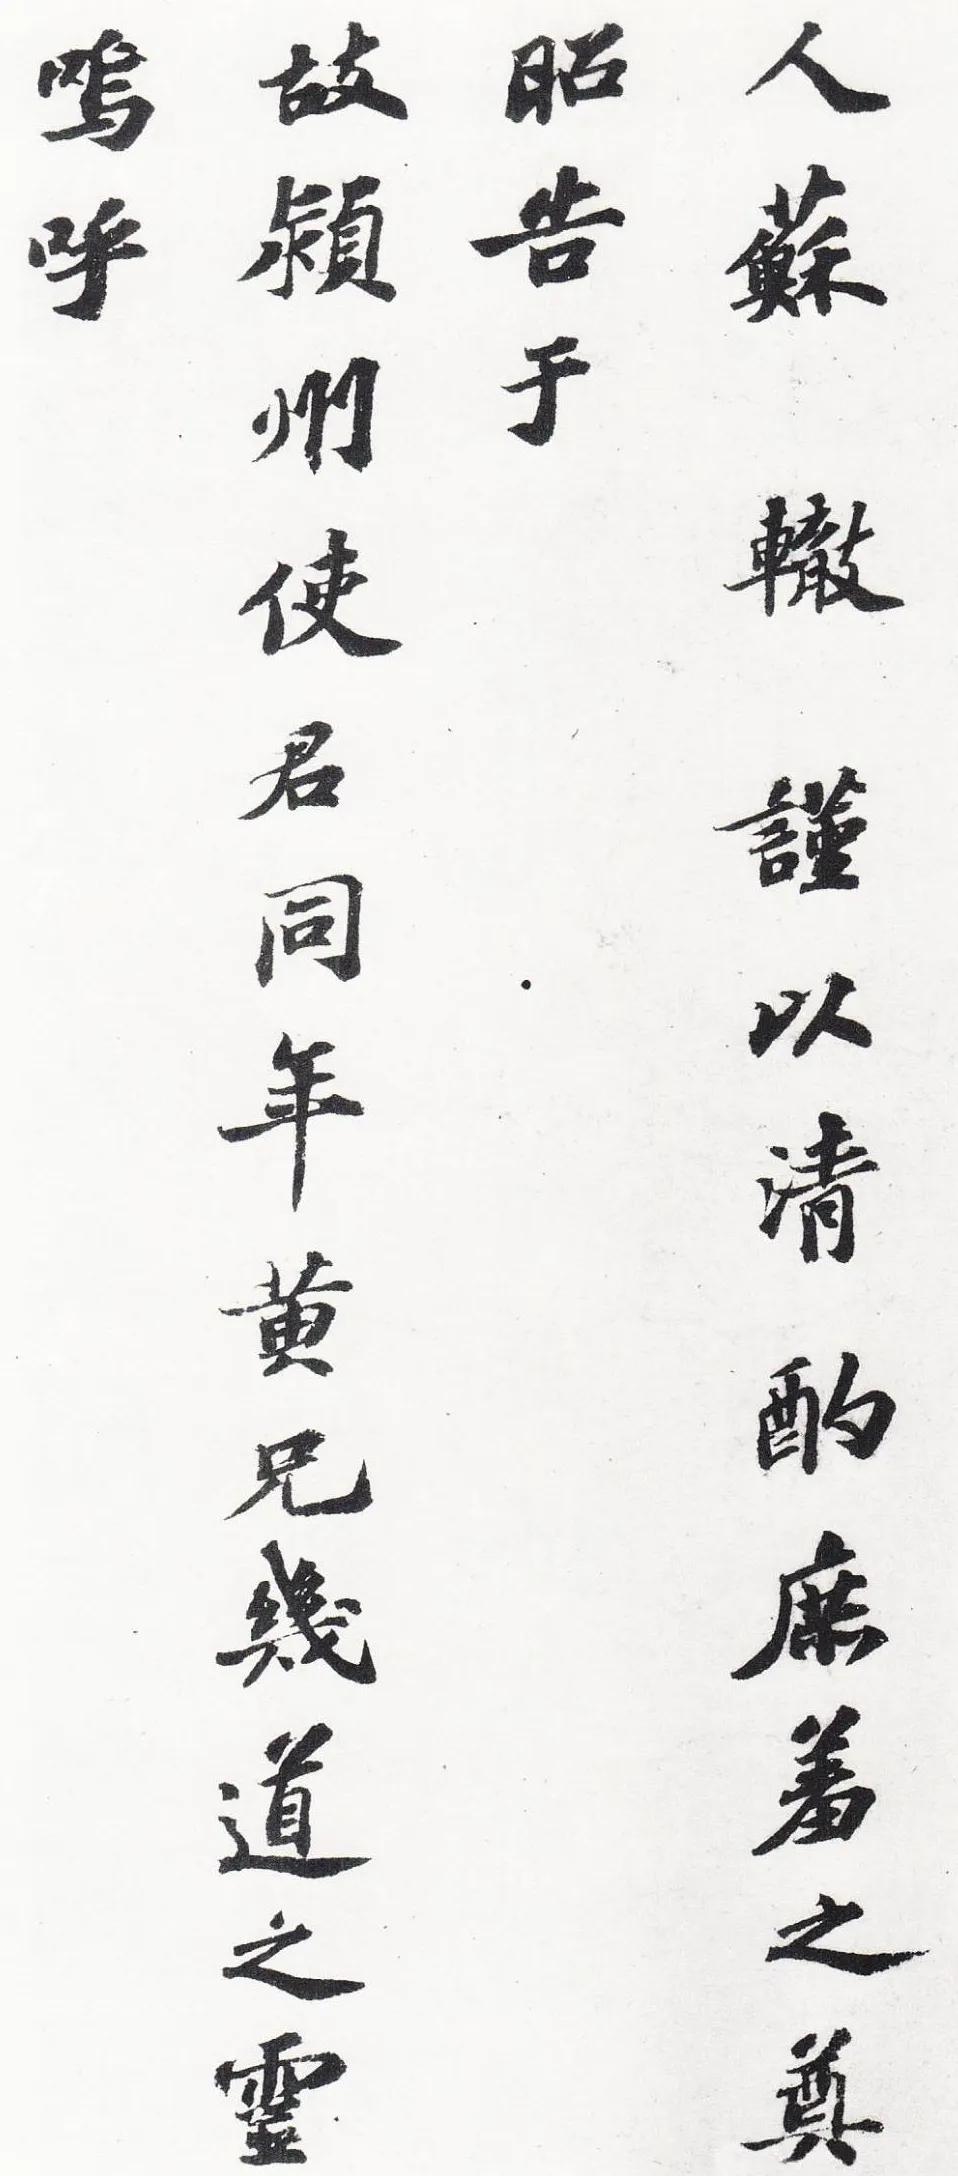 人蘇轍謹以清酌庶羞之奠
昭告于
故潁州使君同年黄兄幾道之靈
嗚呼